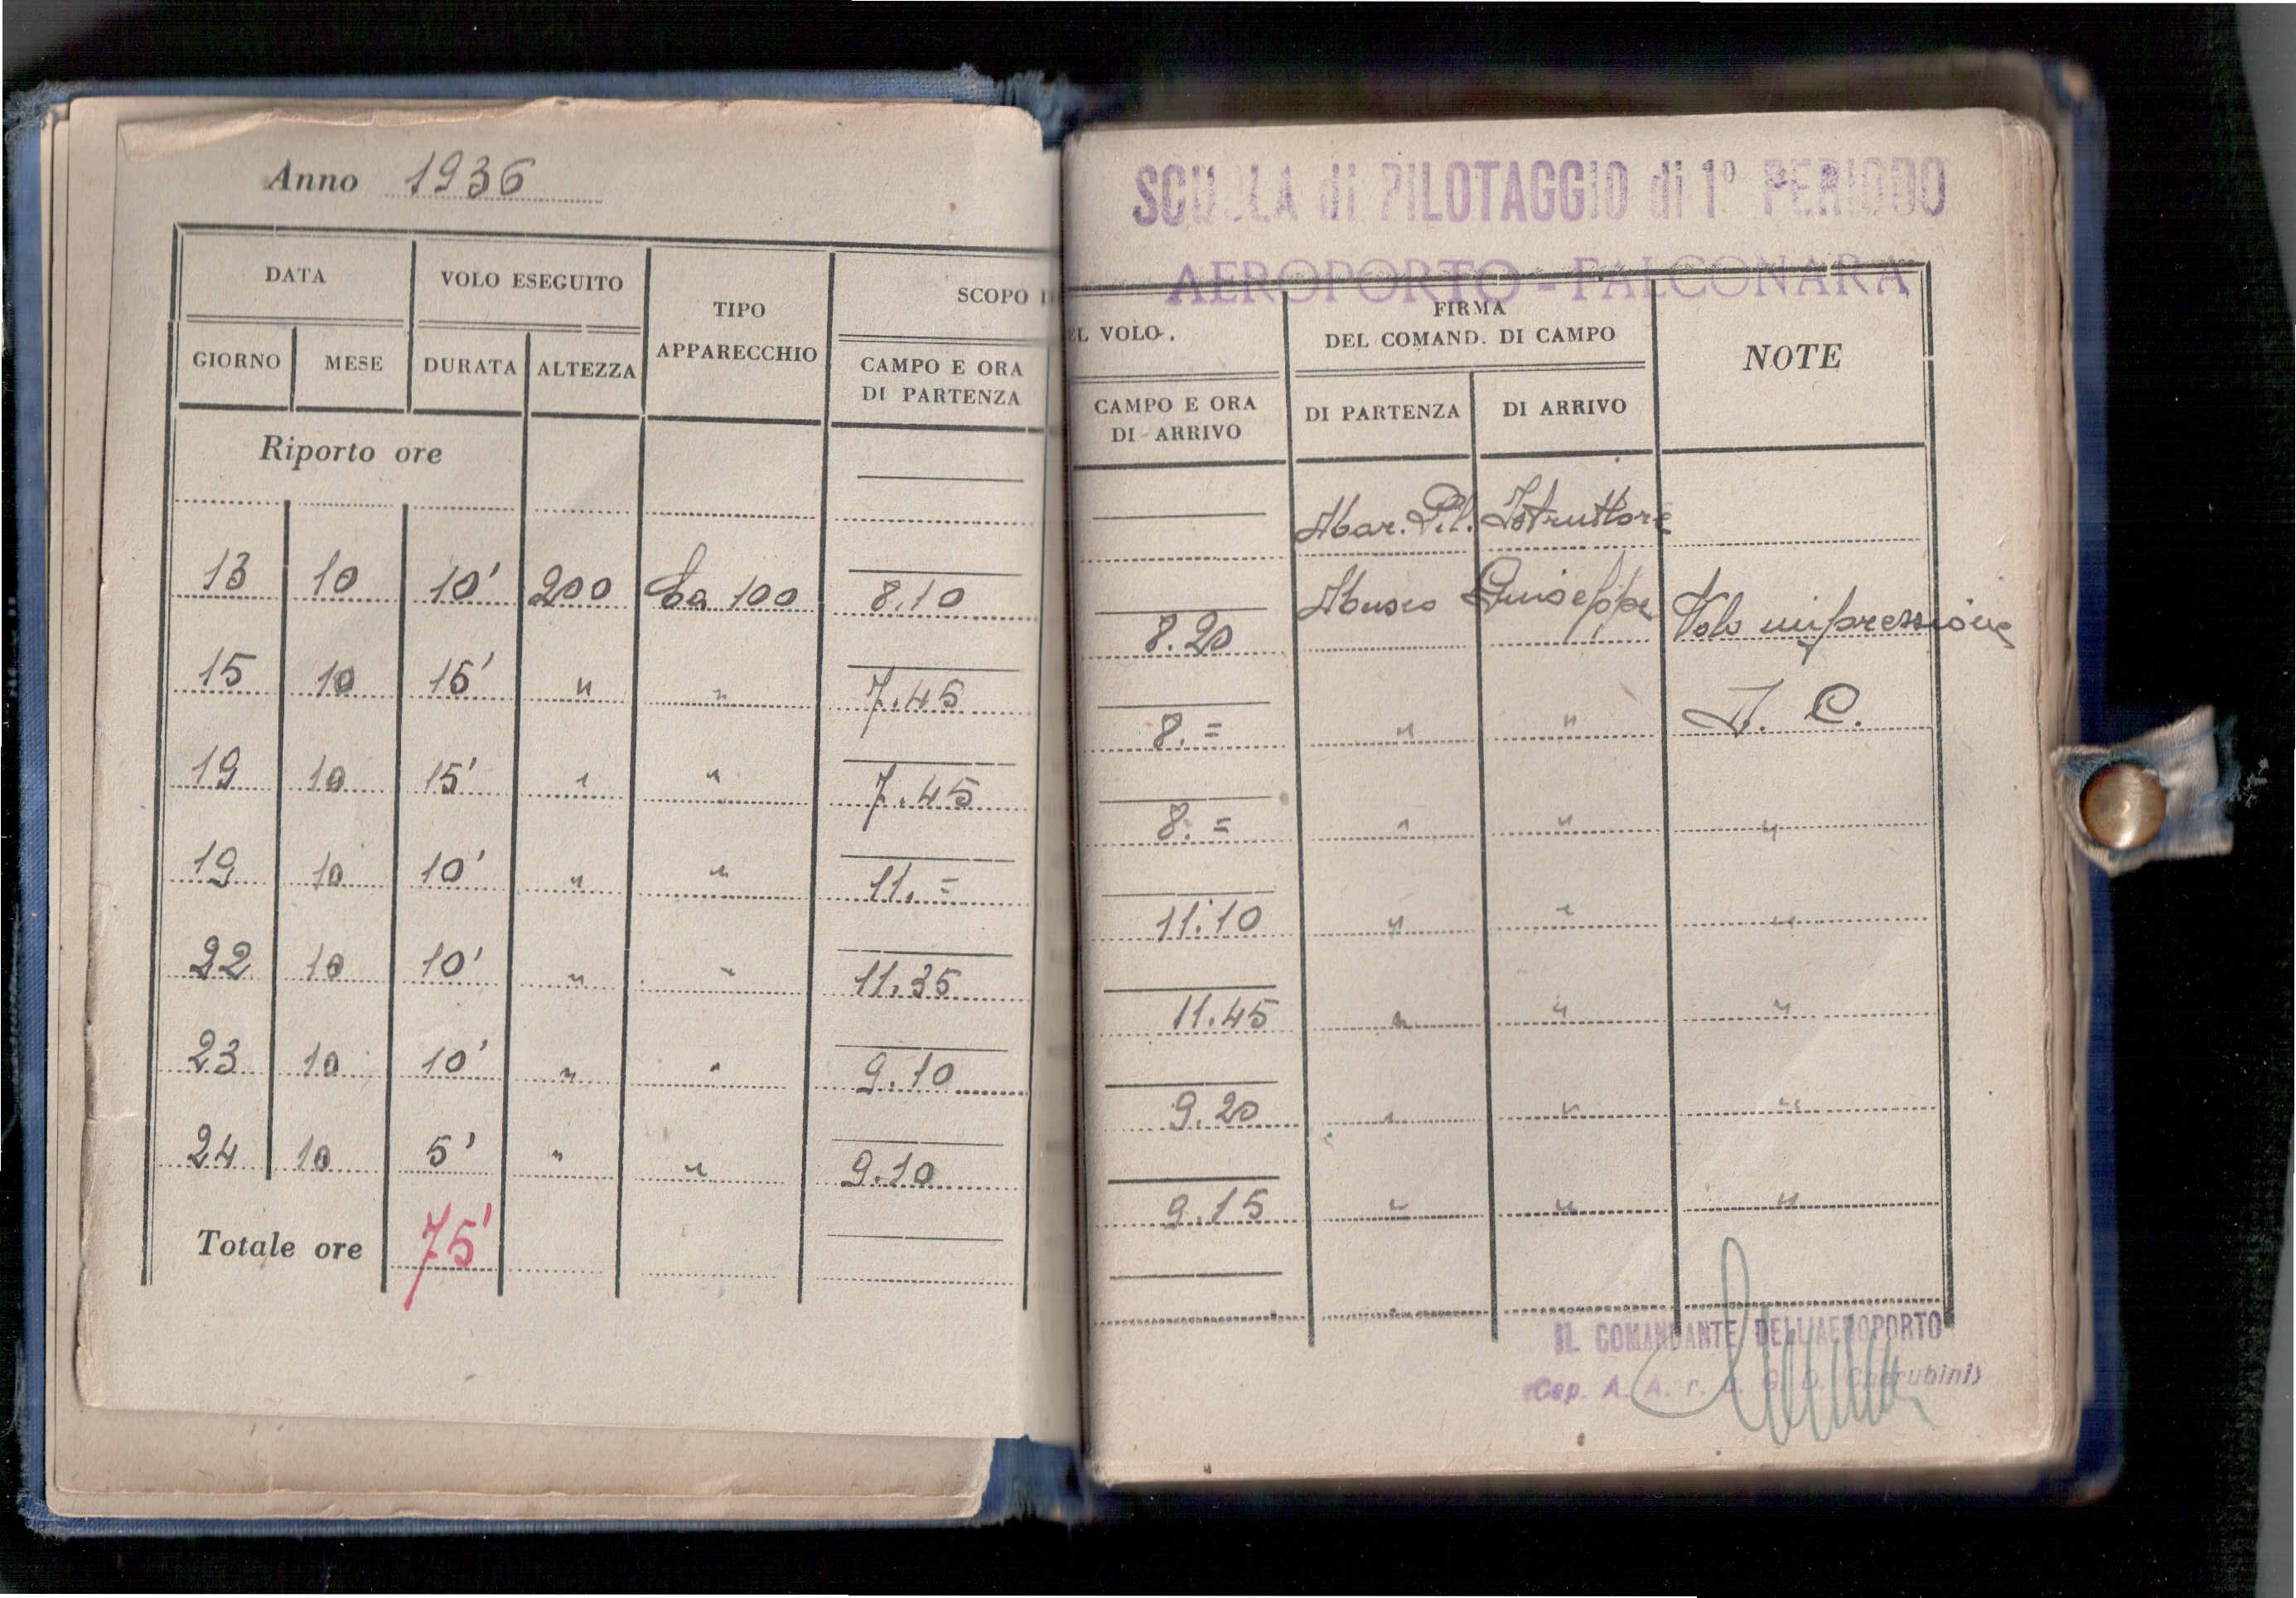 Anno 1936
DATA
VOLO ESEGUITO
TIPO
APPARECCHIO
SCOPO
GIORNO
MESE
DURATA
ALTEZZA
CAMPO E ORA
DI PARTENZA
Riporto ore
13 10 10' 200 Ca 100 8.10
15 10 15' " " 7.45
19 10 15' " " 7.45
19 10 10' " " 11.=
22 10 10' " " 11.35
23 10 10' " " 9.10
24 10 5' " " 9.10
Totale ore 75'
SCUOLA di PILOTAGGIO di 1° PERIODO
AEROPORTO - FALCONARA
EL VOLO.
FIRMA
DEL COMAND. DI CAMPO
NOTE
CAMPO E ORA
DI ARRIVO
DI PARTENZA
DI ARRIVO
Mar. Pil. Istruttore
8.20 Giuseppe Volo impressione
8.= " "
8.= " " "
11.10 " " "
11.45 " " "
9.20 " " "
9.15 " " "
IL COMANDANTE DELL'AEROPORTO
Cap. A. A. r. Cherubini)